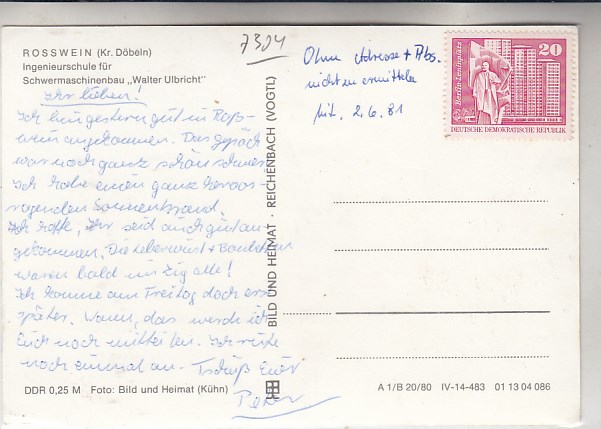 ROSSWEIN (Kr. Döbeln)
Ingenieurschule für
Schwermaschinenbau „Walter Ulbricht"
Ihr lieben!
Ich bin gestern gut in Roß-
wein angekommen. Das Gepäck
war noch ganz schön schwer.
Ich habe einen ganz hervor-
ragenden Sonnenbrand.
Ich hoffe, Ihr seid auch gut an-
gekommen. Die Leberwurst +
waren bald in Zig alle!
Ich komme am Freitag doch erst
später. Wann, das werde ich
Euch noch mitteilen. Ich rufe
noch einmal an. Tschüß Euer
Peter
DDR 0,25 M Foto: Bild und Heimat (Kühn)
BILD UND HEIMAT · REICHENBACH (VOGTL)
7304
Ohne Adresse + Abs.
nicht zu ermitteln
2.6.81
Berlin-Leninplatz
20
DEUTSCHE DEMOKRATISCHE REPUBLIK
A 1/B 20/80 IV-14-483 01 13 04 086